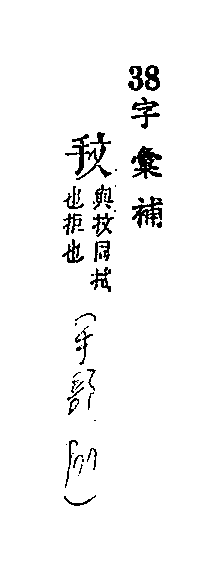 38字彙補
與抆同拭
也拒也
(手部